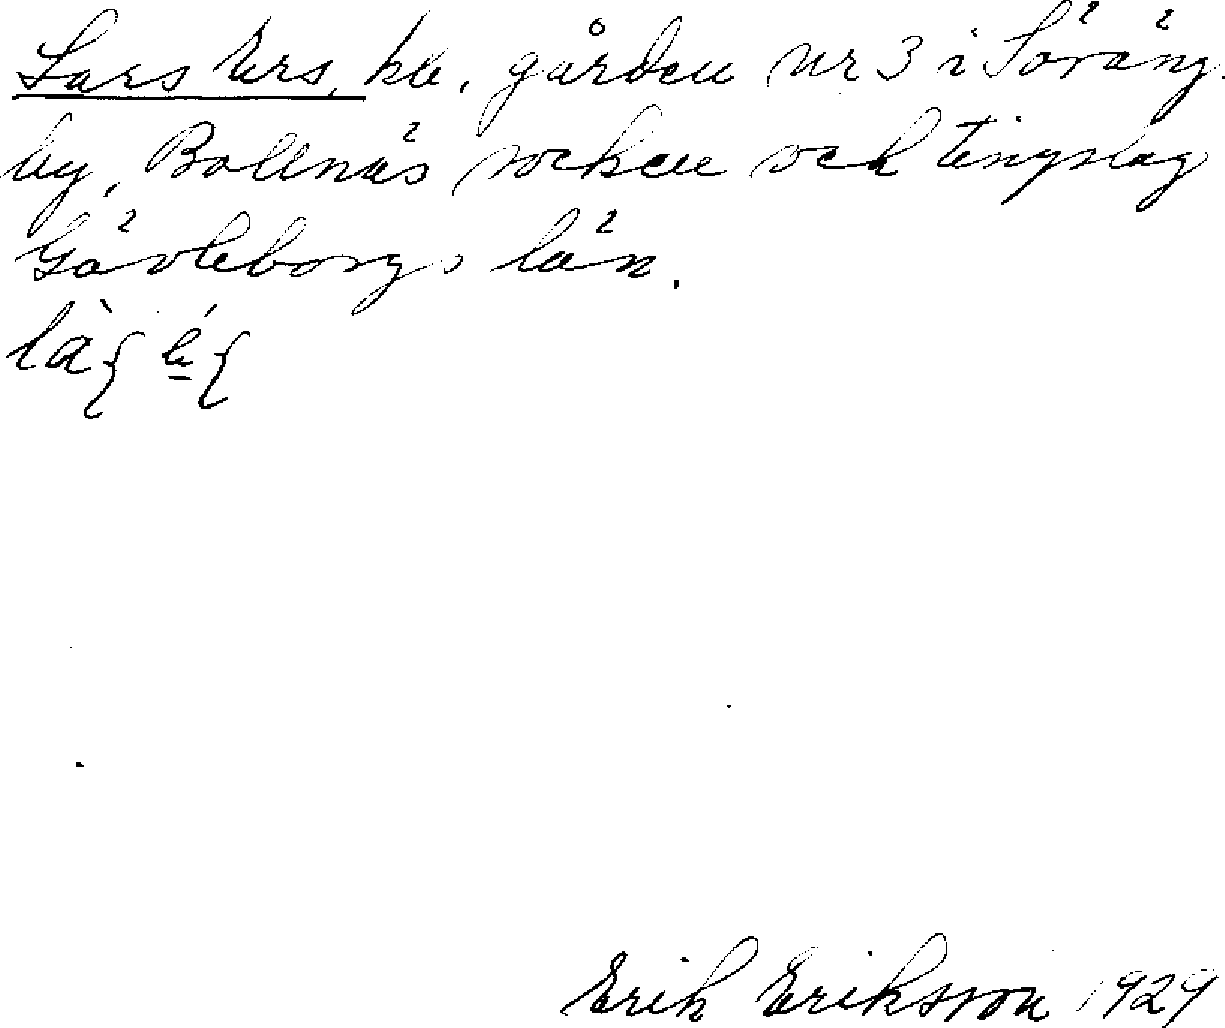 Lars Ers, kll. gården nr 3 i Söräng
by, Bollnäs socken och tingslag
Gävleborgs län.
Erik Eriksson 1929